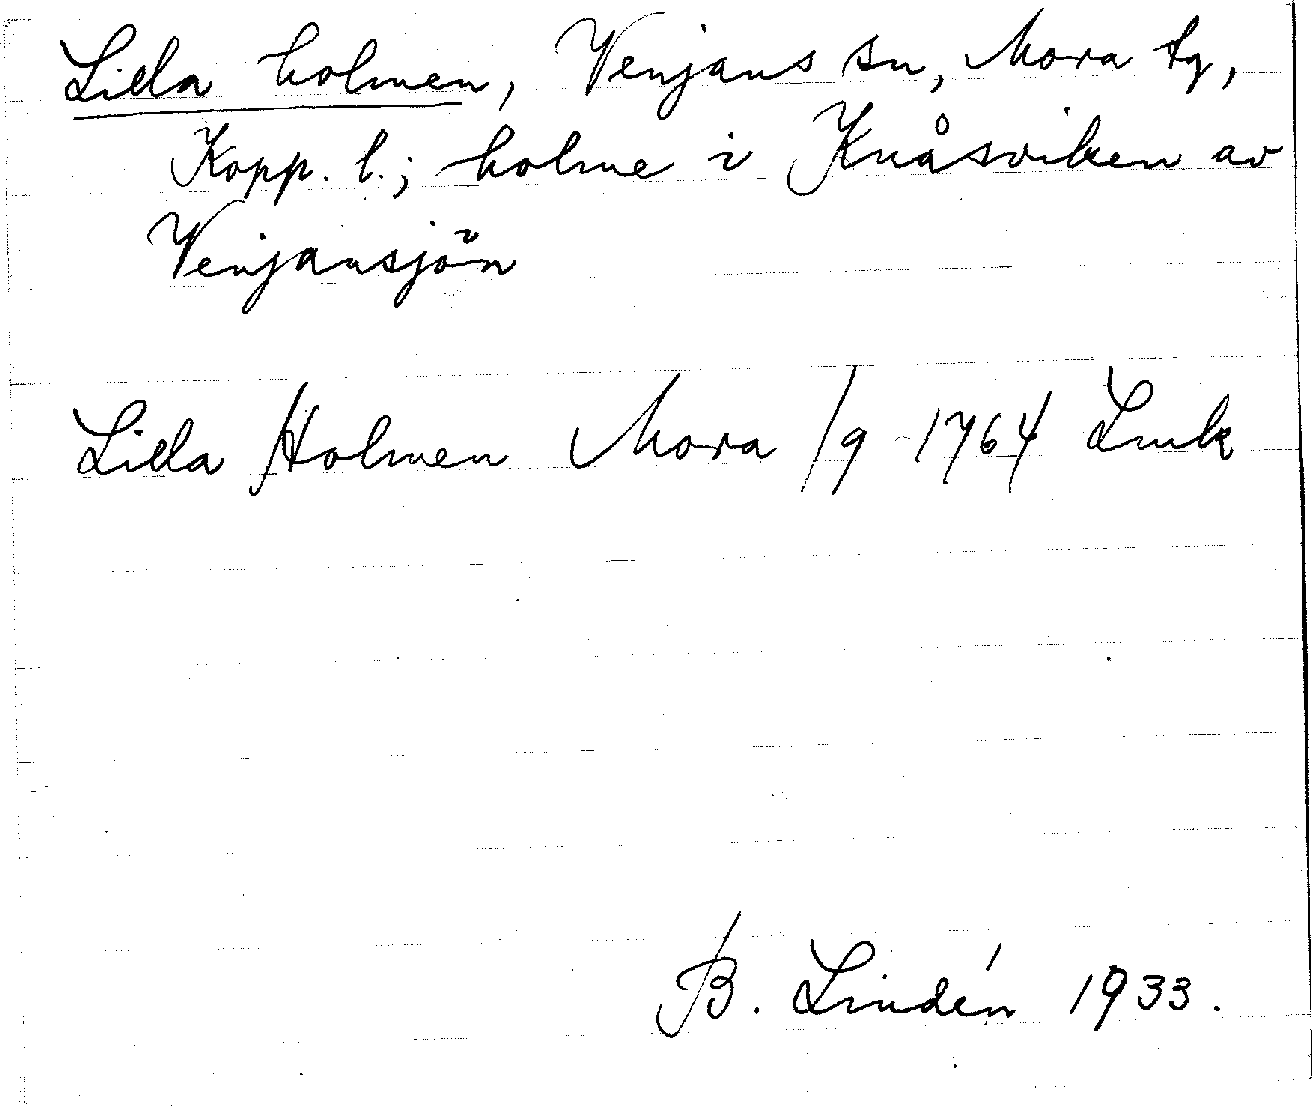 Lilla holmen, Venjans sn, Mora tg,
Kopp. l.; holme i Knåsviken av
Venjansjön
Lilla Holmen Mora /9 1764 Lmk
B. Lindén 1933.